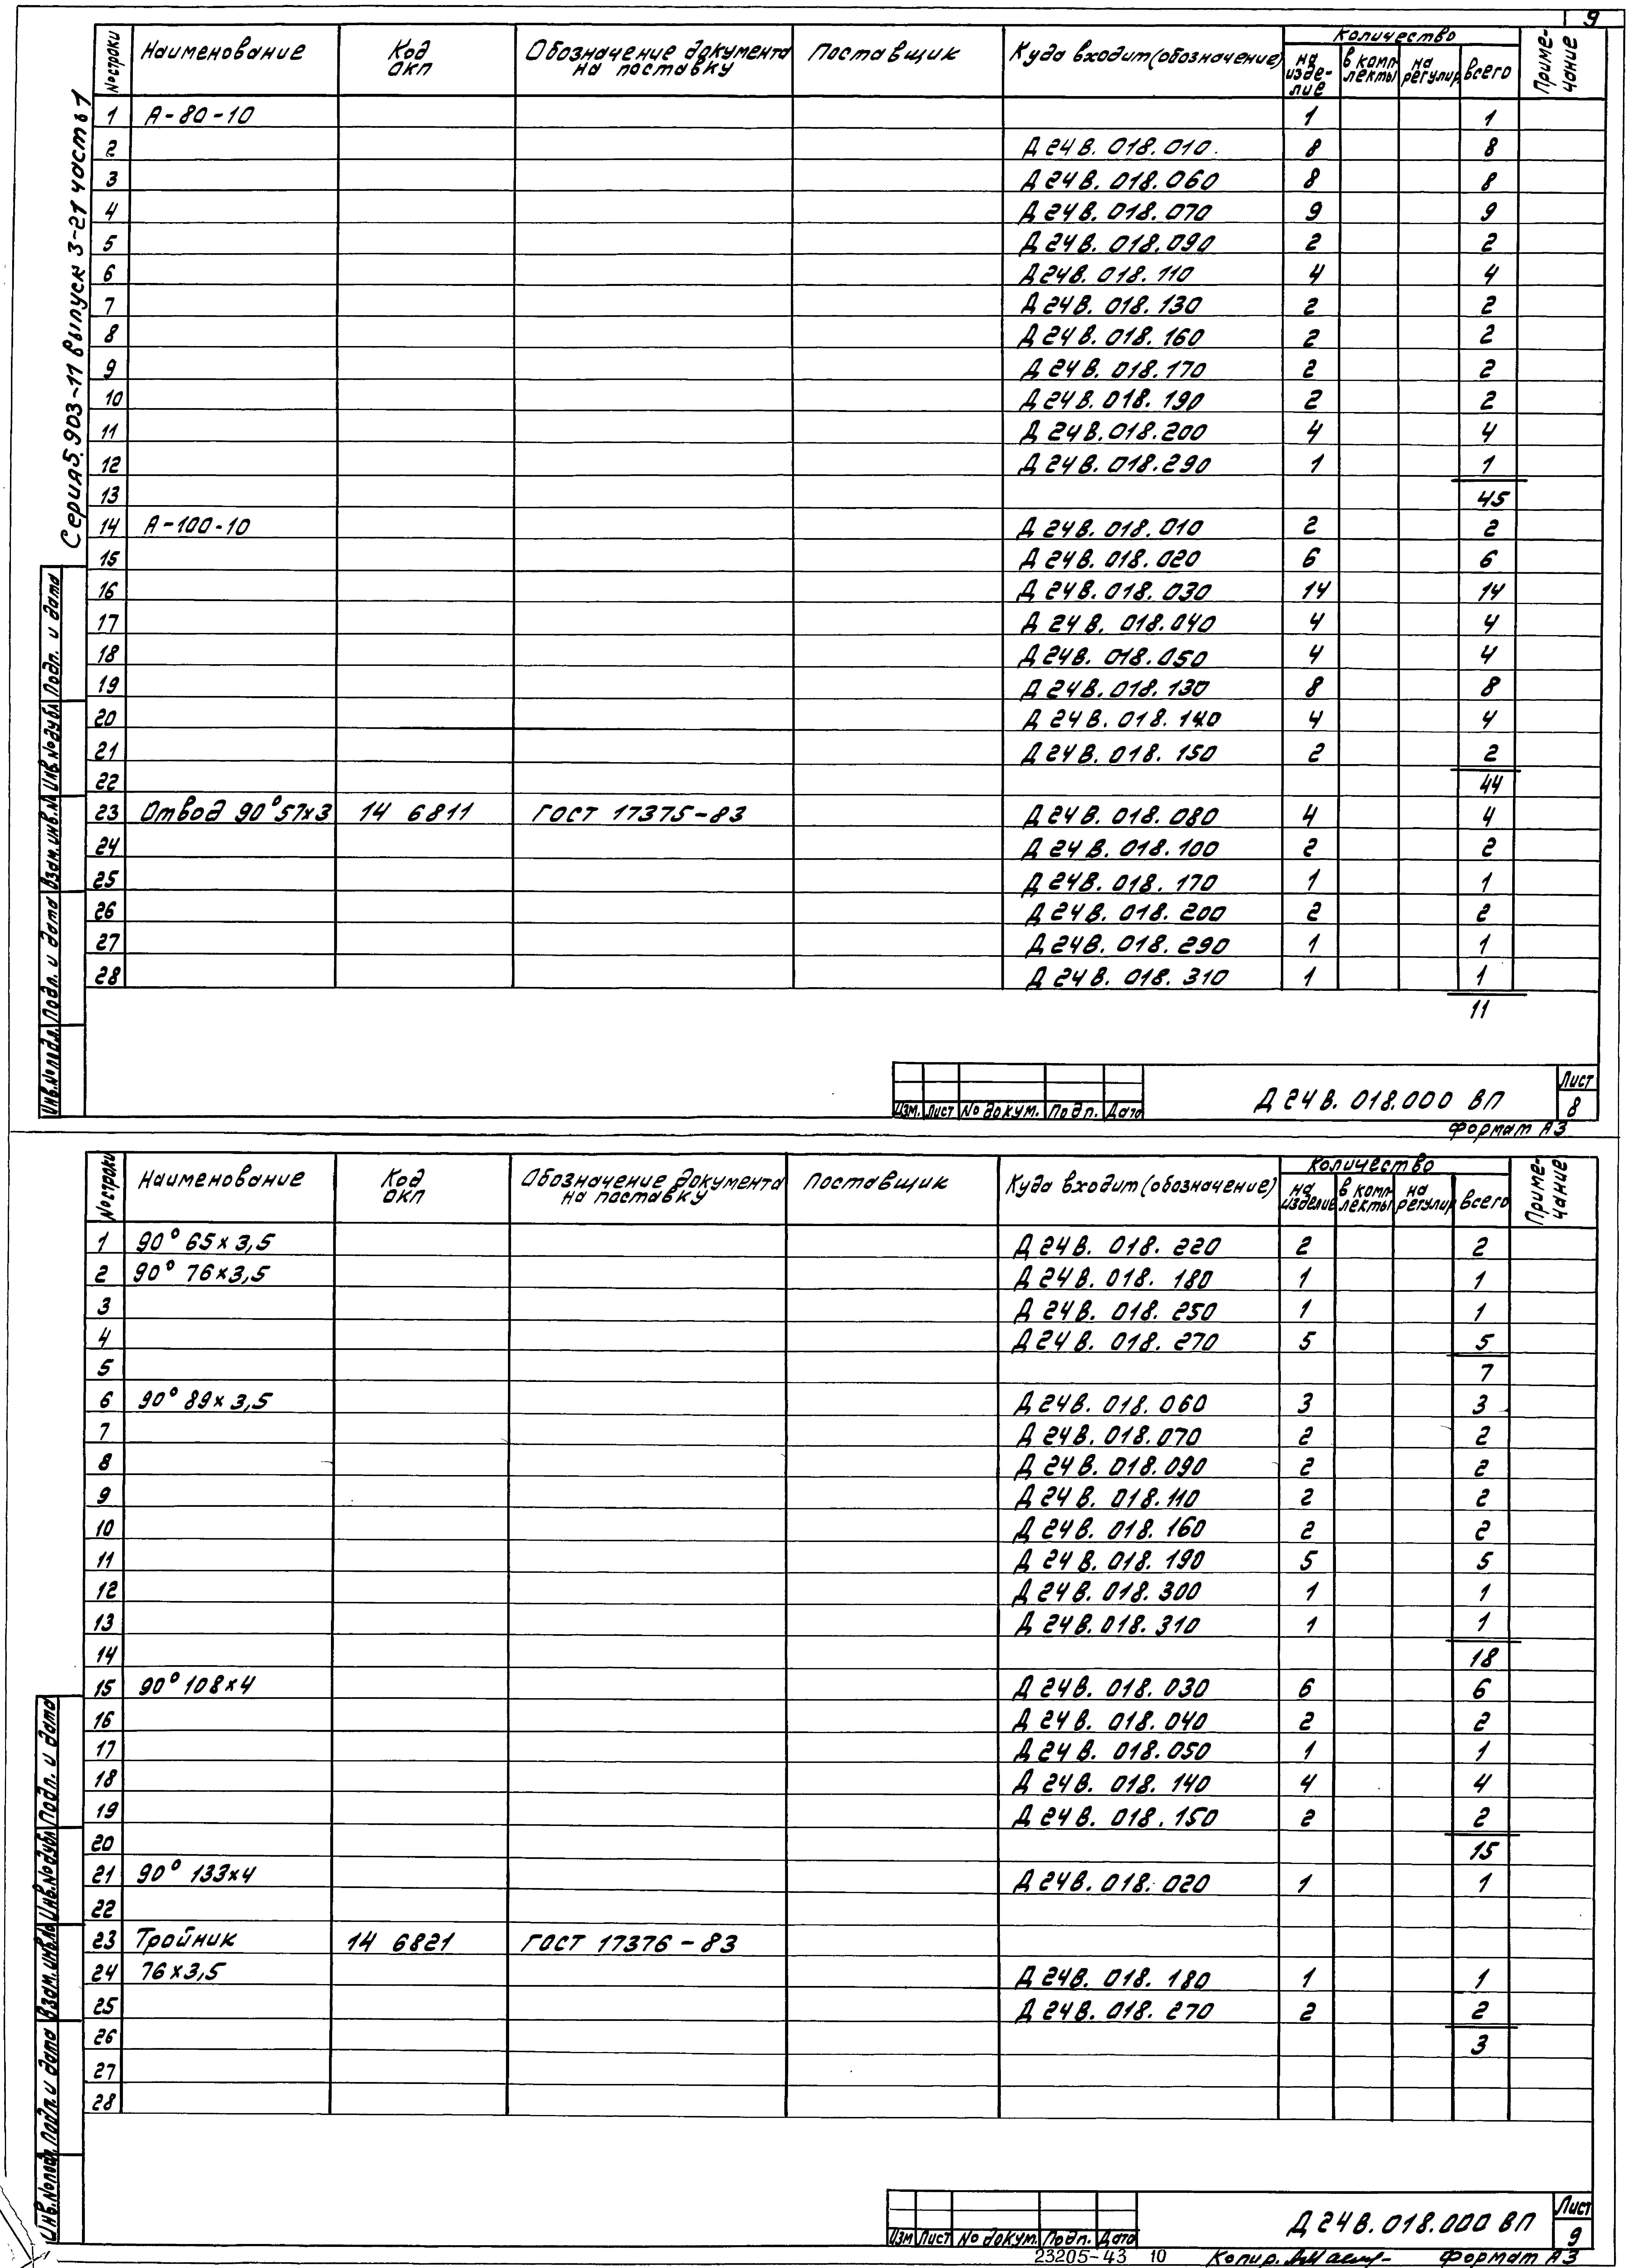 9
Серия 5.903-11 выпуск 3-21 часть 1
№ строки Наименование Код ОКП Обозначение документа на поставку Поставщик Куда входит (обозначение) Количество Приме-чание
на изде-лие в комп-лекты на регулир всего
1 А-80-10 1 1
2 Д 24 В. 018.010. 8 8
3 Д 24 В. 018.060 8 8
4 Д 24 В. 018.070 9 9
5 Д 24 В. 018.090 2 2
6 Д 24 В. 018. 110 4 4
7 Д 24 В. 018. 130 2 2
8 Д 24 В. 018. 160 2 2
9 Д 24 В. 018. 170 2 2
10 Д 24 В. 018. 190 2 2
11 Д 24 В. 018.200 4 4
12 Д 24 В. 018.290 1 1
13 45
14 А-100-10 Д 24 В. 018.010 2 2
15 Д 24 В. 018.020 6 6
16 Д 24 В. 018.030 14 14
17 Д 24 В. 018.040 4 4
18 Д 24 В. 018.050 4 4
19 Д 24 В. 018.130 8 8
20 Д 24 В. 018. 140 4 4
21 Д 24 В. 018. 150 2 2
22 44
23 Отвод 90° 57х3 14 6811 ГОСТ 17375-83 Д 24 В. 018.080 4 4
24 Д 24 В. 018.100 2 2
25 Д 24 В. 018. 170 1 1
26 Д 24 В. 018. 200 2 2
27 Д 24 В. 018. 290 1 1
28 Д 24 В. 018. 310 1 1
11
Инв.№подл. Подп. и дата Взам.инв.№ Инв.№дубл. Подп. и дата
Изм. Лист № докум. Подп. Дата Д 24 В. 018.000 ВП Лист 8
Формат А3
№ строки Наименование Код ОКП Обозначение документа на поставку Поставщик Куда входит (обозначение) Количество Приме-чание
на изделие в комп-лекты на регулир всего
1 90° 65х3,5 Д 24 В. 018. 220 2 2
2 90° 76х3,5 Д 24 В. 018. 180 1 1
3 Д 24 В. 018. 250 1 1
4 Д 24 В. 018. 270 5 5
5 7
6 90° 89х3,5 Д 24 В. 018. 060 3 3
7 Д 24 В. 018.070 2 2
8 Д 24 В. 018.090 2 2
9 Д 24 В. 018.110 2 2
10 Д 24 В. 018. 160 2 2
11 Д 24 В. 018. 190 5 5
12 Д 24 В. 018. 300 1 1
13 Д 24 В. 018. 310 1 1
14 18
15 90° 108х4 Д 24 В. 018. 030 6 6
16 Д 24 В. 018.040 2 2
17 Д 24 В. 018.050 1 1
18 Д 24 В. 018. 140 4 4
19 Д 24 В. 018. 150 2 2
20 15
21 90° 133х4 Д 24 В. 018. 020 1 1
22
23 Тройник 14 6821 ГОСТ 17376-83
24 76х3,5 Д 24 В. 018. 180 1 1
25 Д 24 В. 018. 270 2 2
26 3
27
28
Инв.№подл. Подп. и дата Взам.инв.№ Инв.№дубл. Подп. и дата
Изм Лист № докум. Подп. Дата Д 24 В. 018.000 ВП Лист 9
23205-43 10 Копир. Формат А3